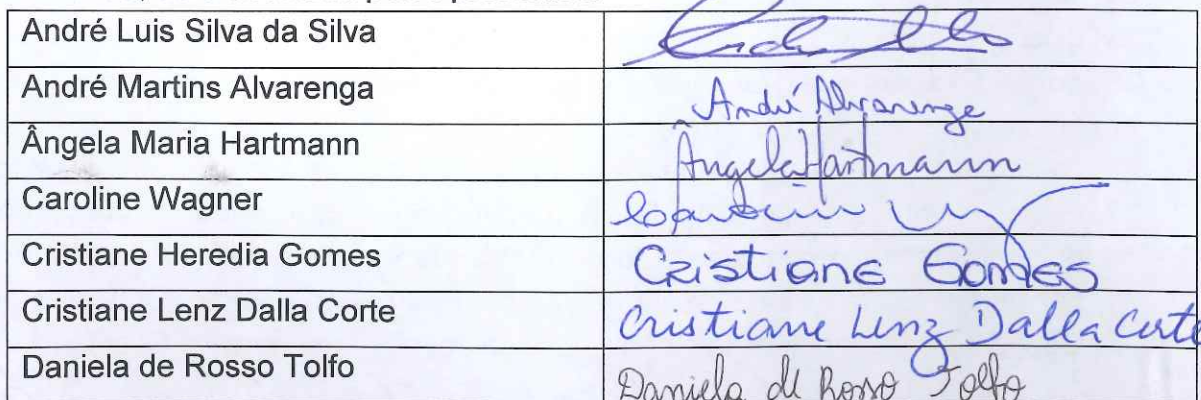 André Luis Silva da Silva
André Martins Alvarenga André Alvarenga
Ângela Maria Hartmann Ângela Hartmann
Caroline Wagner
Cristiane Heredia Gomes Cristiane Gomes
Cristiane Lenz Dalla Corte Cristiane Lenz Dalla Corte
Daniela de Rosso Tolfo Daniela de Rosso Tolfo